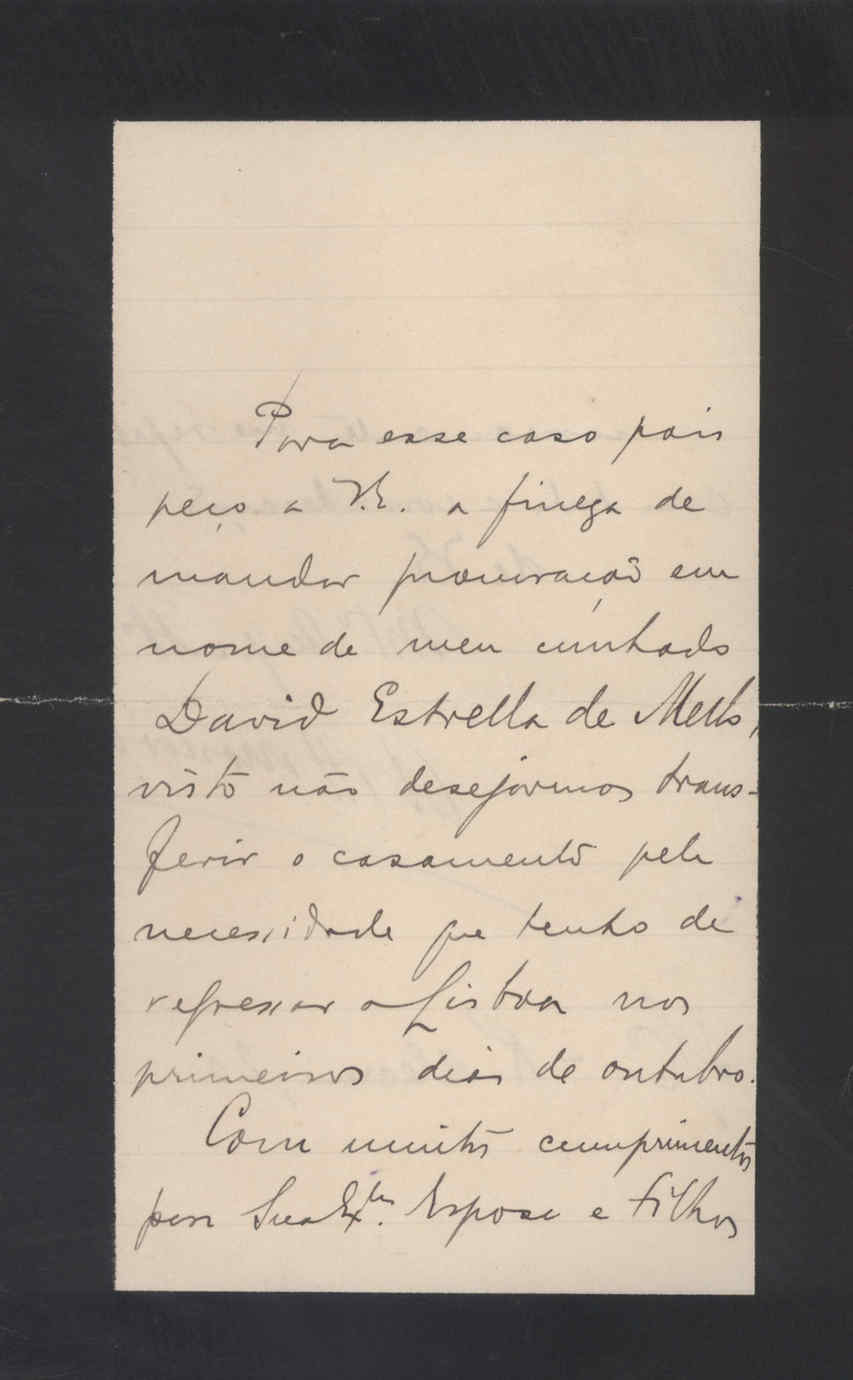 Para esse caso pois
peço a V.E. a fineza de
mandar procuração em
nome de meu cunhado
David Estrella de Mello,
visto não desejarmos trans-
ferir o casamento pela
necessidade que tenho de
regressar a Lisboa nos
primeiros dias de outubro.
Com muitos cumprimentos
para Sua Ex.ma Esposa e Filhos